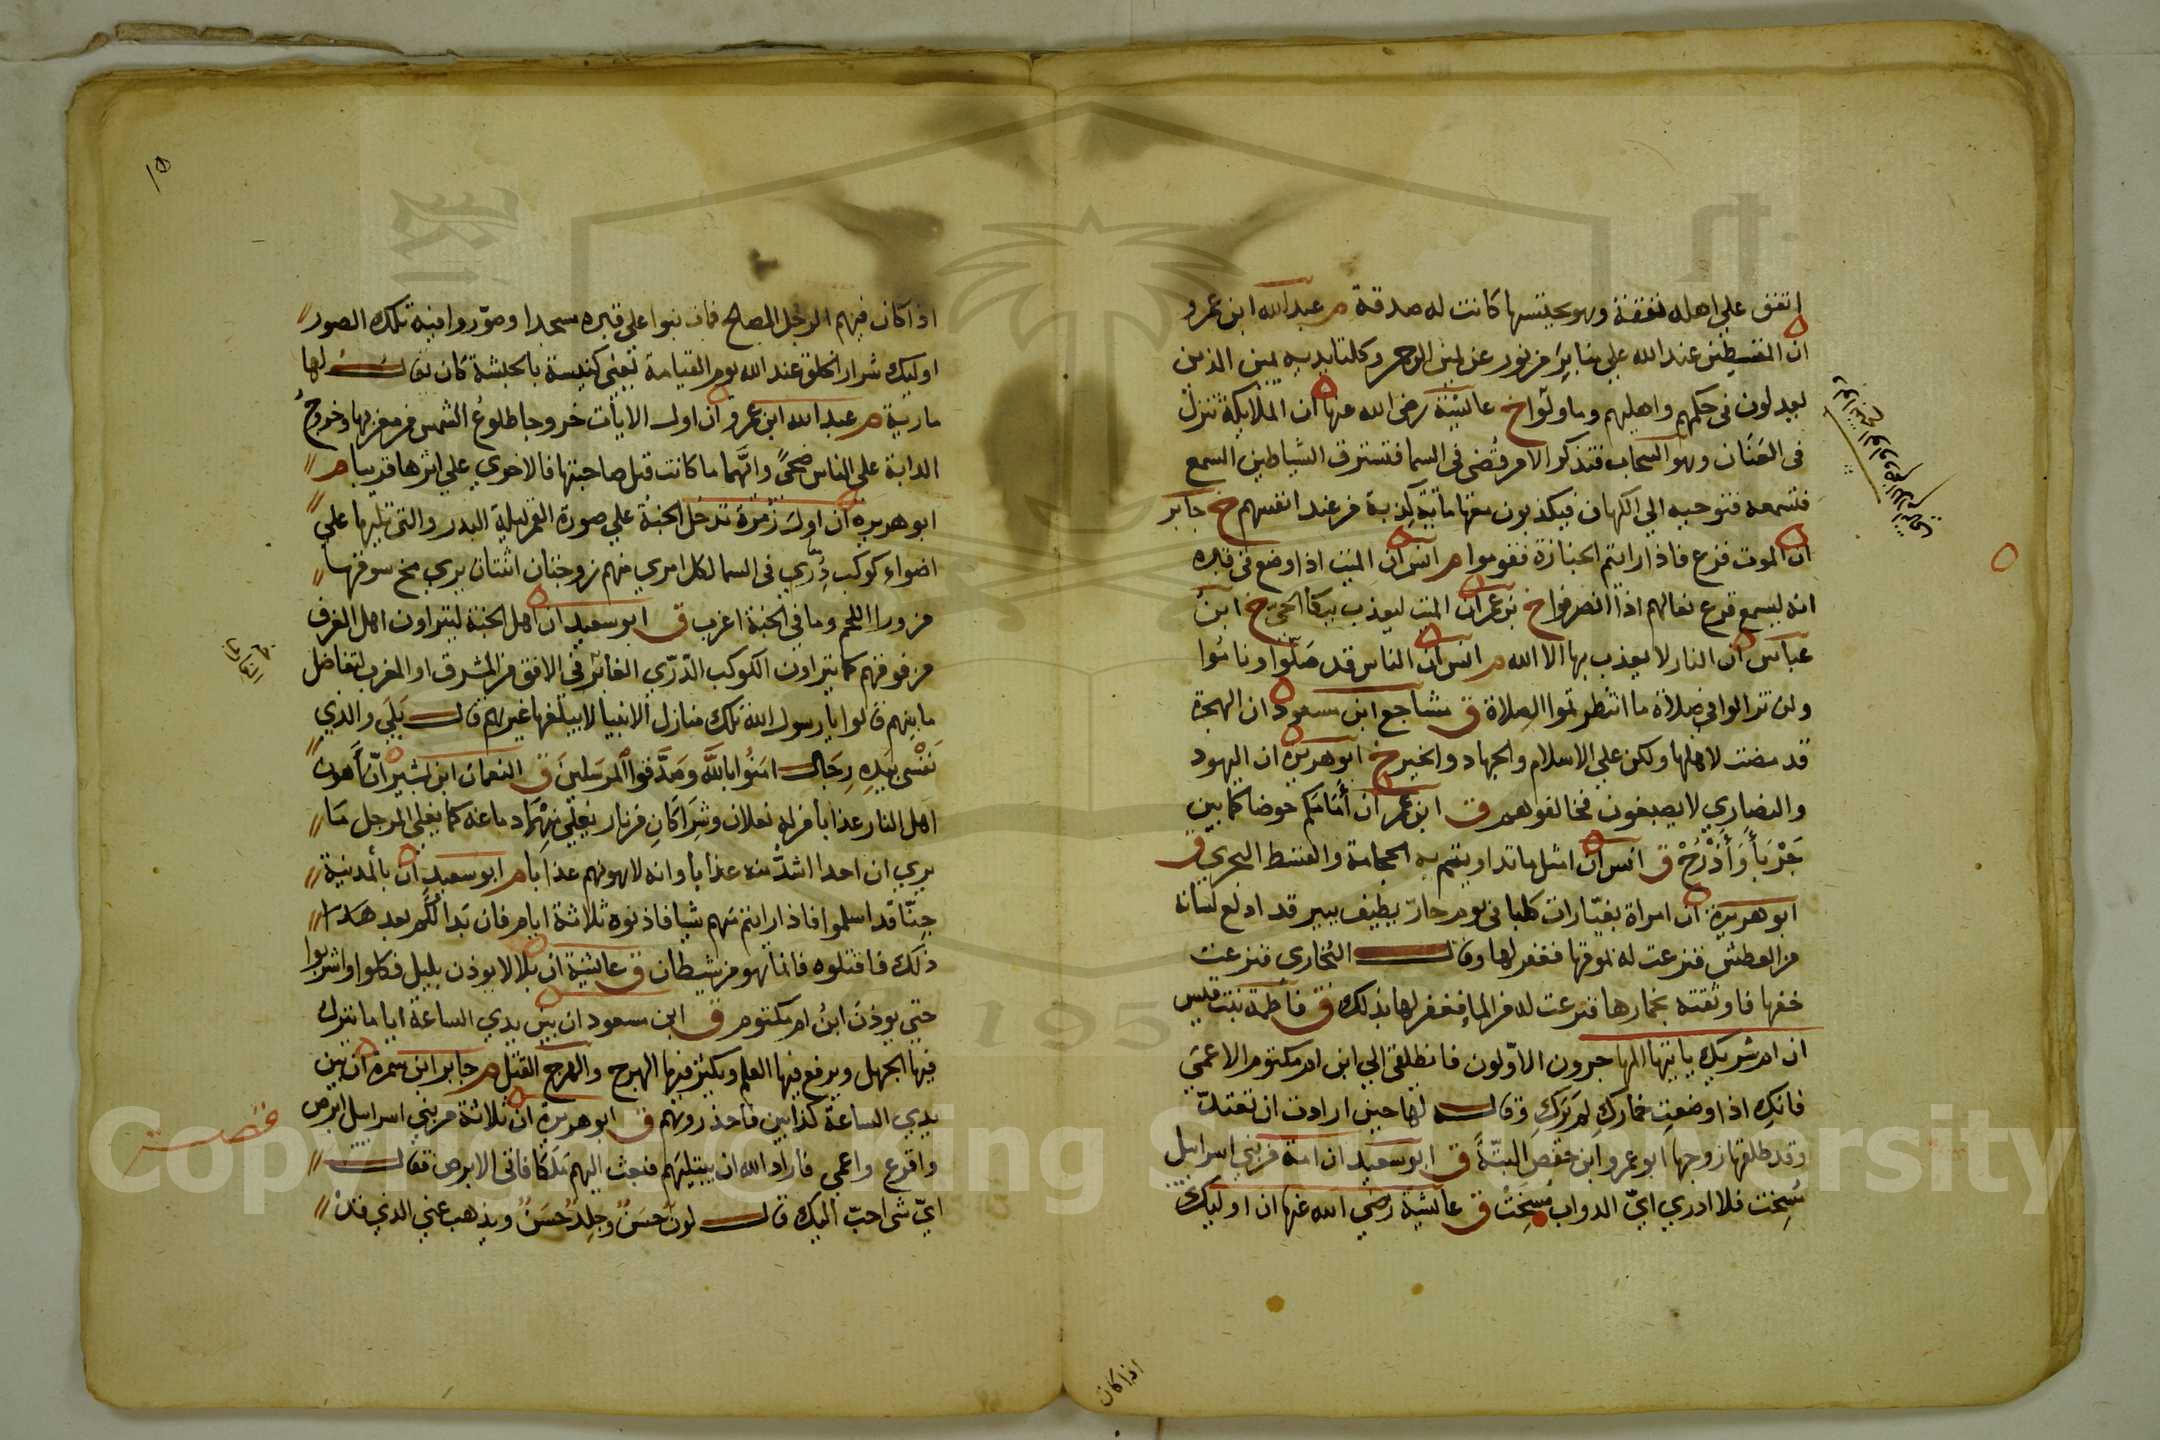 انفق علي اهله نفقة وهو يحتسبها كانت له صدقة م عبد الله ابن عمرو
ان المقسطين عند الله علي منابر من نور عن يمين الرحمن وكلتا يديه يمين الذين
يعدلون في حكمهم واهليهم وما ولوا خ عائشة رضي الله عنها ان الملائكة تنزل
في العنان وهو السحاب فتذكر الامر قضي في السما فتسترق الشياطين السمع
فتسمعه فتوحيه الي الكهان فيكذبون معها مائة كذبة من عند انفسهم خ جابر
ان الموت فزع فاذا رايتم الجنازة فقوموا م انس ان الميت اذا وضع في قبره
انه ليسمع قرع نعالهم اذا انصرفوا خ بن عمر ان الميت ليعذب ببكا الحي خ ابن
عباس ان النار لا يعذب بها الا الله م انس ان الناس قد صلوا وناموا
ولن تزالوا في صلاة ما انتظرتموا الصلاة ق مشاجع ابن مسعود ان الهجرة
قد مضت لاهلها ولكن علي الاسلام والجهاد والخير خ ابو هريرة ان اليهود
والنصاري لا يصبغون فخالفوهم ق ابن عمر ان أمامكم حوضا كما بين
جَرْبَأَ وَأَذْرُحْ ق انس ان امثل ما تداويتم به الحجامة والقسط البحري ق
ابو هريرة ان امراة بغيا رات كلبا في يوم حار يطيف ببير قد ادلع لسانه
من العطش فنزعت له موقها فغفر لها وقال البخاري فنزعت
خفها فاوثقته بخمارها فنزعت له من الما فغفر لها بذلك ق فاطمة بنت قيس
ان ام شريك ياتيها المهاجرون الاولون فانطلقي الي ابن ام مكتوم الاعمي
فانكِ اذا وضعتِ خماركِ لم يَركِ وقال لها حين ارادت ان تعتد
وقد طلقها زوجها ابو عمرو ابن حفص البتّة ق ابو سعيد ان امة من بني اسرايل
مُسِخت فلا ادري ايّ الدواب مُسِخَتْ ق عائشة رضي الله عنها ان اوليك
اذا كان
اذا كان فيهم الرجل الصالح فمات بنوا علي قبره مسجدا وصوّروا فيه تلك الصور
اوليك شرار الخلق عند الله يوم القيامة يعني كنيسة بالحبشة كان يقال لها
مارية م عبد الله ابن عمرو ان اول الايات خروجا طلوعُ الشمس من مغربها وخروجُ
الدابة علي الناس ضحيً وايّهما ما كانت قبل صاحبتها فالاخري علي اثرها قريبا م
ابو هريره ان اولَ زُمْرَة تدخل الجنة علي صورة القمر ليلة البدر والتي تليها علي
اضواءِ كوكب دُرّي في السما لكل امري منهم زوجتان اثنتان يري مخ سوقهما
من ورا اللحم وما في الجنة اعزب ق ابو سعيد ان اهل الجنة ليتراون اهل الغرف
من فوقهم كما يتراون الكوكب الدّرّي الغابر في الافق من المشرق او المغرب لتفاضل
ما بينهم قالوا يا رسول الله تلك منازل الانبيا لا يبلغها غيرهم قال بَلَي والذي
نَفْسي بيَدِهِ رِجَال امَنُوا بالله وَصَدَّقوا المرسَلِينَ ق النعمان ابن بشير انّ أهون
اهل النار عذابا من له نعلان وشِرَاكَانِ من نار يغلي منْهما دماغه كما يغلي المرجل مَا
يري ان احدا اشدّ منه عذابا وانه لاهونهم عذابا م ابو سعيد ان بالمدينة
جِنّا قد اسلموا فاذا رايتم منهم شيا فاذنوه ثلاثة ايام فان بَدا لكُم بعد هَذا
ذلك فاقتلوه فانما هو من شيطان ق عائشة ان بلالا يوذن بليل فكلوا واشربوا
حتي يوذن ابنُ ام مكتوم ق ابن مسعود ان بين يدي الساعة اياما ينزل
فيها الجهل ويرفع فيها العلم ويكثر فيها الهرج والهرج القتل م جابر ابن سمرة ان بين
يدي الساعة كذابين فاحذروهم ق ابو هريرة ان ثلاثة من بني اسرايل ابرص
واقرع واعمي فاراد الله ان يبتليَهم فبعث اليهم مَلَكًا فاتي الابرص فقال
ايّ شي احبّ اليك قال لونٌ حسَنٌ وجِلدٌ حَسَنٌ ويذهب عني الذي قدْ